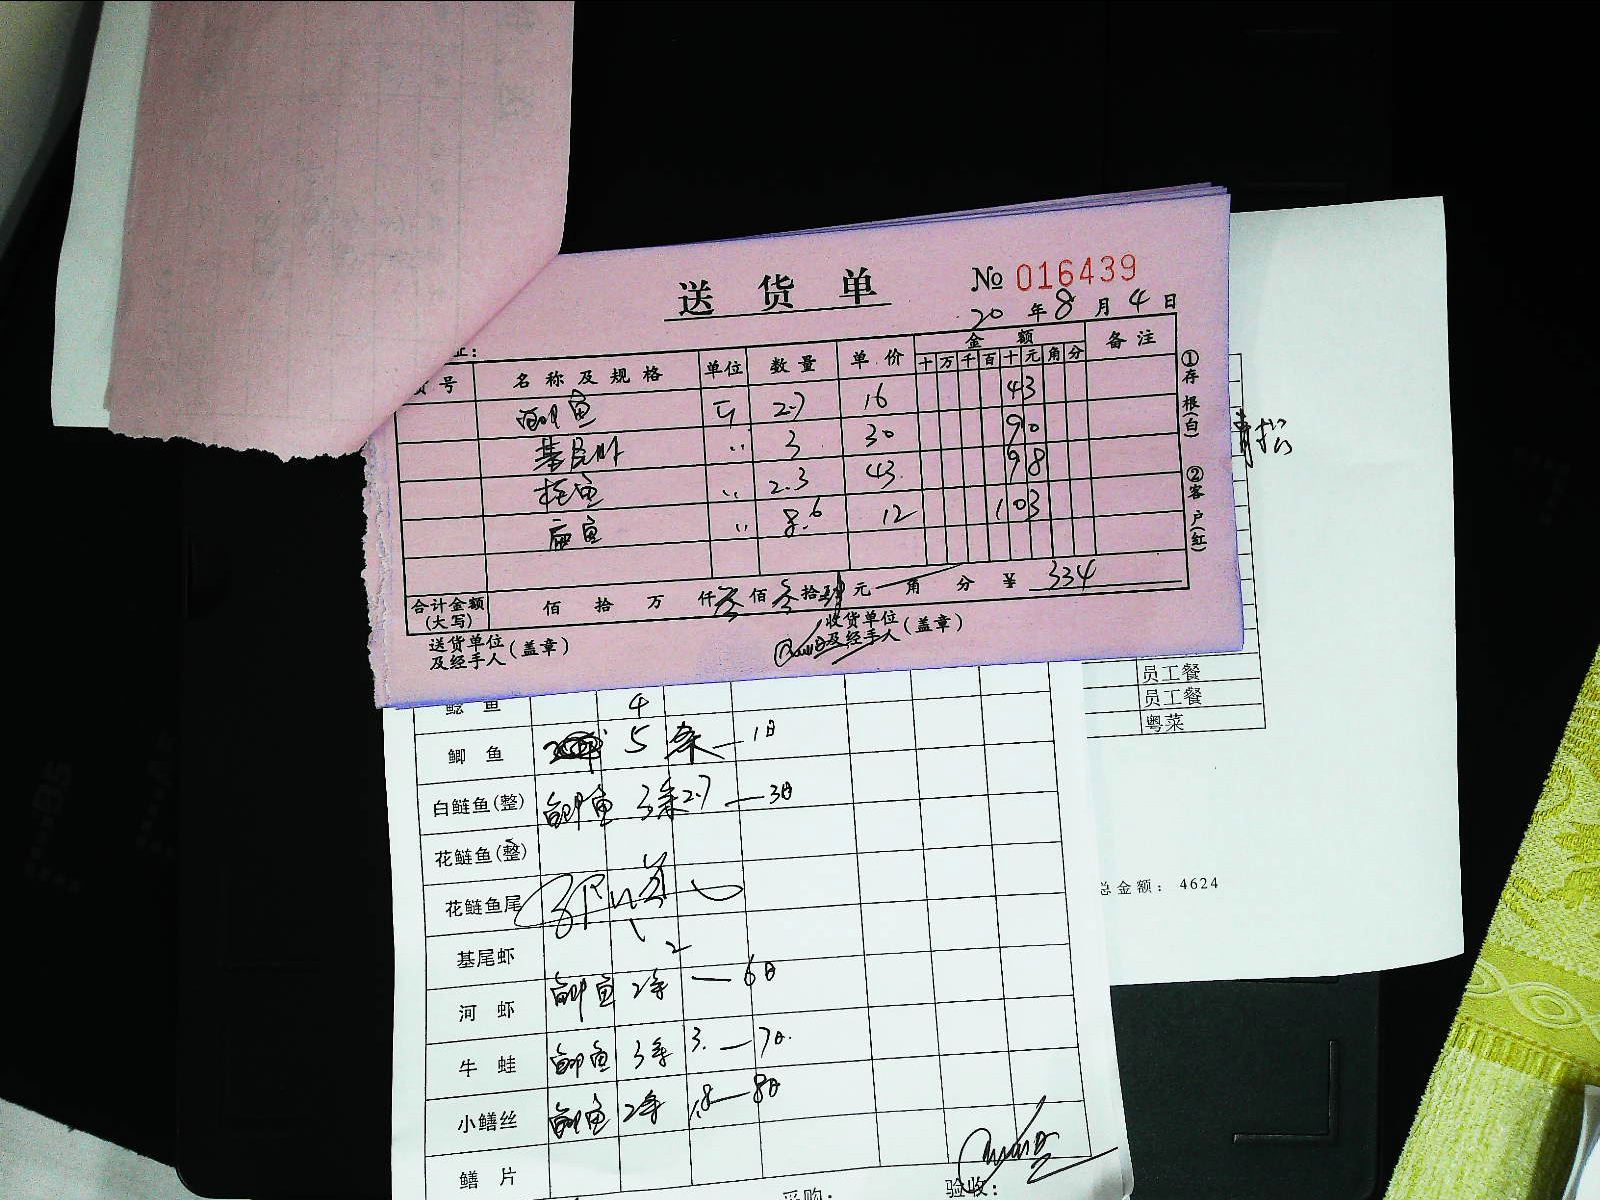 送货单 № 016439
20 年 8 月 4 日
号 名称及规格 单位 数量 单价 金额 备注
十 万 千 百 十 元 角 分
鲫鱼 斤 2.7 16 43
基尾虾 〃 3 30 90
桂鱼 〃 2.3 43 98
鱼 〃 8.6 12 103
合计金额(大写) 佰 拾 万 仟 叁 佰 叁 拾 肆 元 角 分 ¥ 334
送货单位及经手人(盖章) 收货单位及经手人(盖章)
①存根(白) ②客户(红)
鲶鱼 4
鲫鱼 5 条 — 1日
白鲢鱼(整) 鲫鱼 3条 2.7 — 3日
花鲢鱼(整)
花鲢鱼尾
基尾虾 2
河虾 鲫鱼 2条 — 6日
牛蛙 鲫鱼 3条 3. — 7日.
小鳝丝 鲫鱼 2条 1.8 — 8日
鳝片
采购: 验收:
员工餐
员工餐
粤菜
总金额: 4624